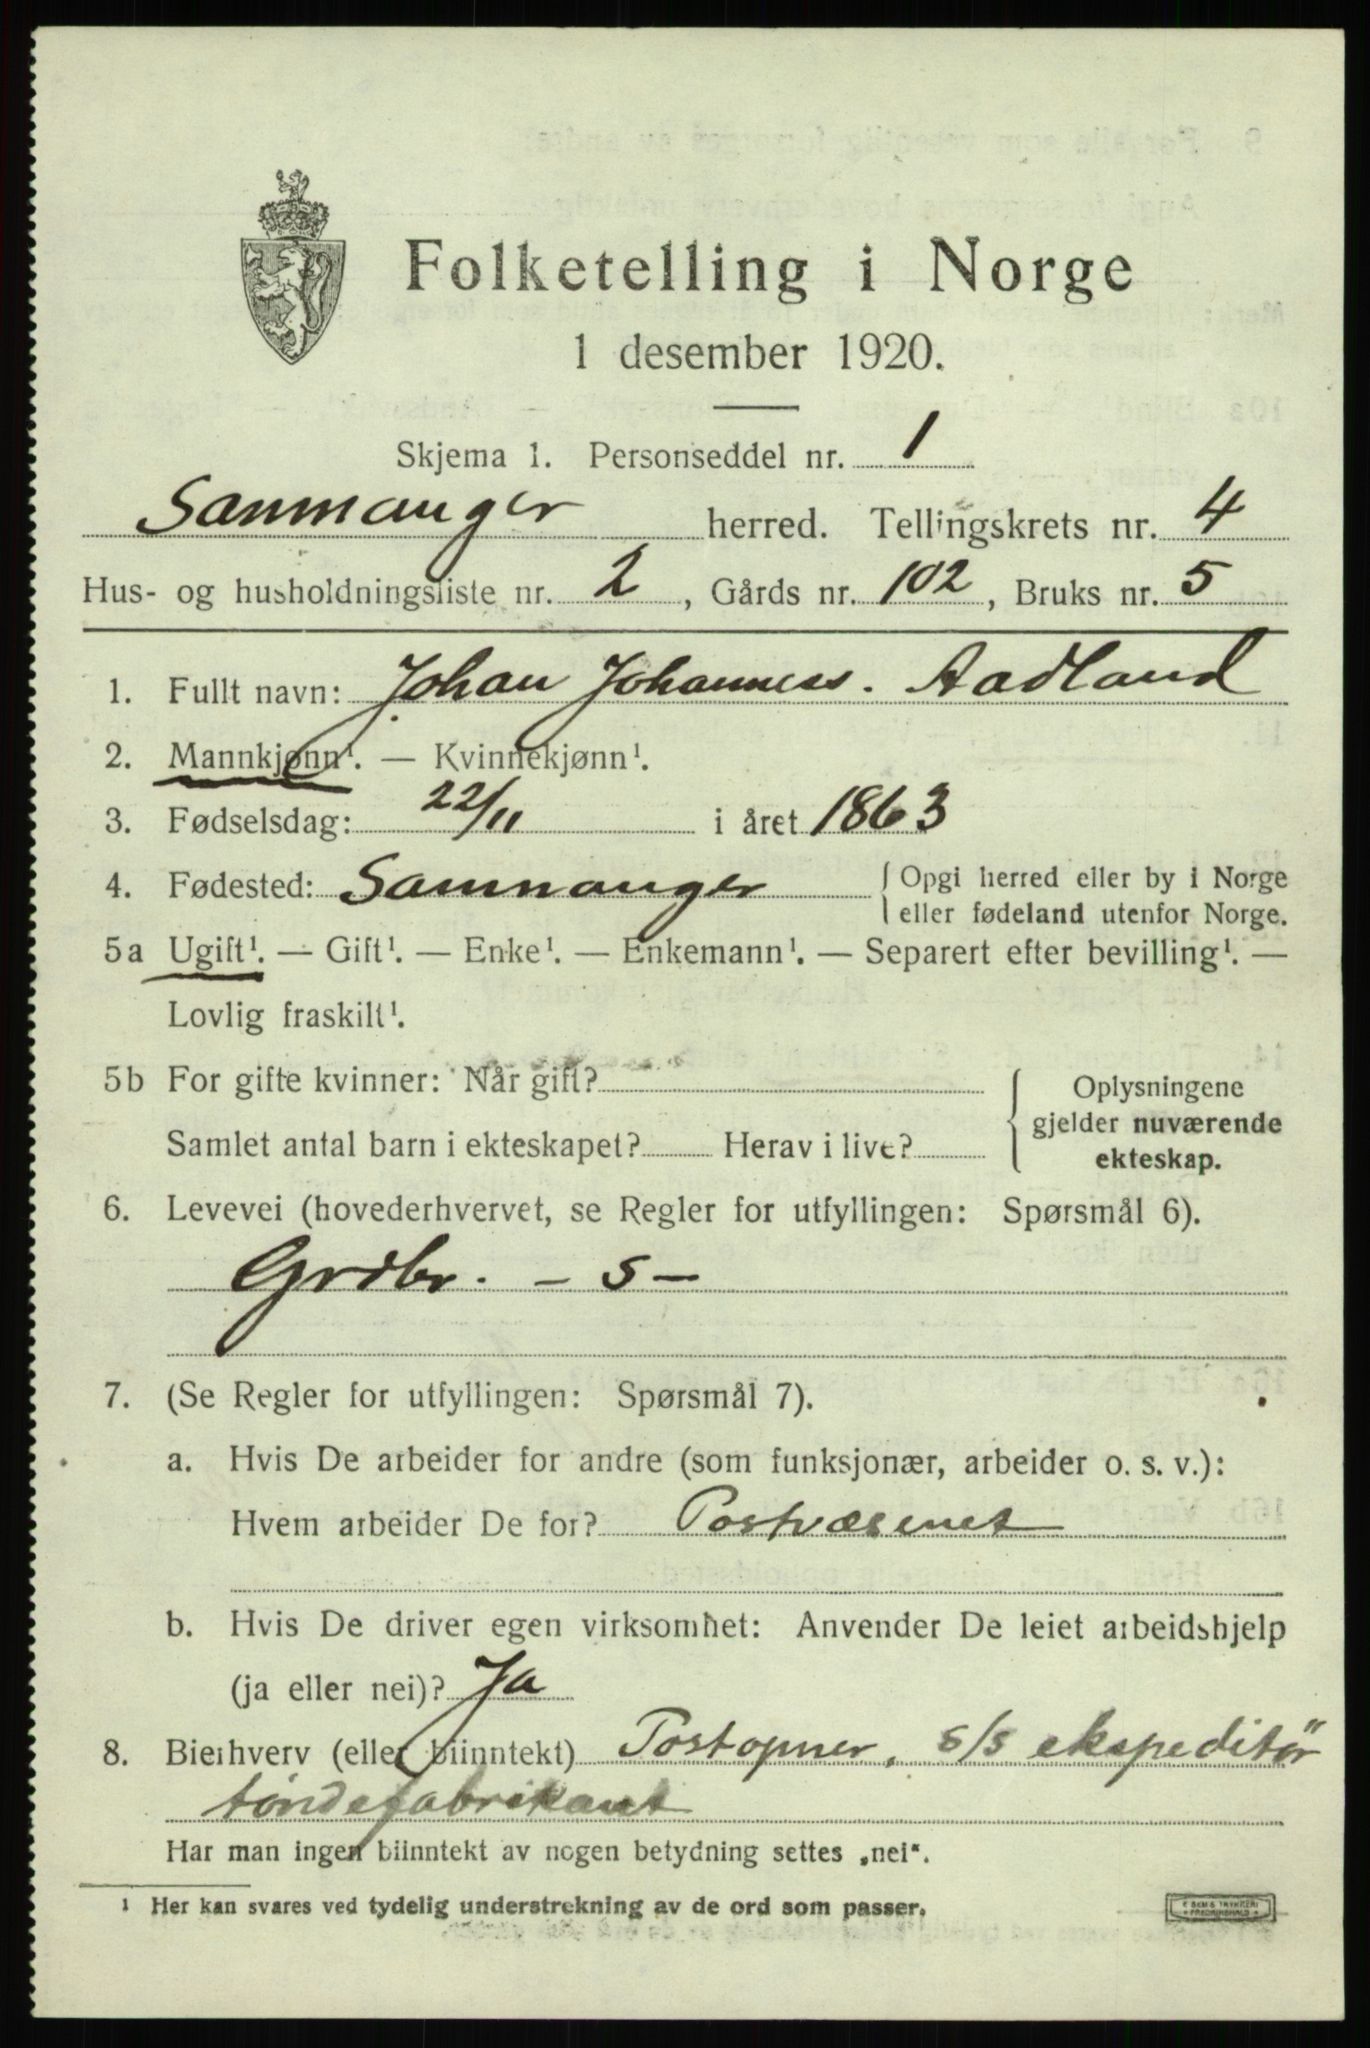 Folketelling i Norge
1 desember 1920.
Skjema 1. Personseddel nr. 1
Samnanger herred. Tellingskrets nr. 4
Hus- og husholdningsliste nr. 2, Gårds nr. 102, Bruks nr. 5
1. Fullt navn: Johan Johanness. Aadland
2. Mannkjønn¹. — Kvinnekjønn¹.
3. Fødselsdag: 22/11 i året 1863
4. Fødested: Samnanger { Opgi herred eller by i Norge
eller fødeland utenfor Norge.
5a Ugift¹. — Gift¹. — Enke¹. — Enkemann¹. — Separert efter bevilling¹. —
Lovlig fraskilt¹.
5b For gifte kvinner: Når gift?
Samlet antal barn i ekteskapet? Herav i live?
{ Oplysningene
gjelder nuværende
ekteskap.
6. Levevei (hovederhvervet, se Regler for utfyllingen: Spørsmål 6).
Grdbr. - s -
7. (Se Regler for utfyllingen: Spørsmål 7).
a. Hvis De arbeider for andre (som funksjonær, arbeider o. s. v.):
Hvem arbeider De for? Postvæsenet
b. Hvis De driver egen virksomhet: Anvender De leiet arbeidshjelp
(ja eller nei)? Ja
8. Bierhverv (eller biinntekt) Postopner, s/s ekspeditør
tøndefabrikant
Har man ingen biinntekt av nogen betydning settes „nei".
¹ Her kan svares ved tydelig understrekning av de ord som passer.